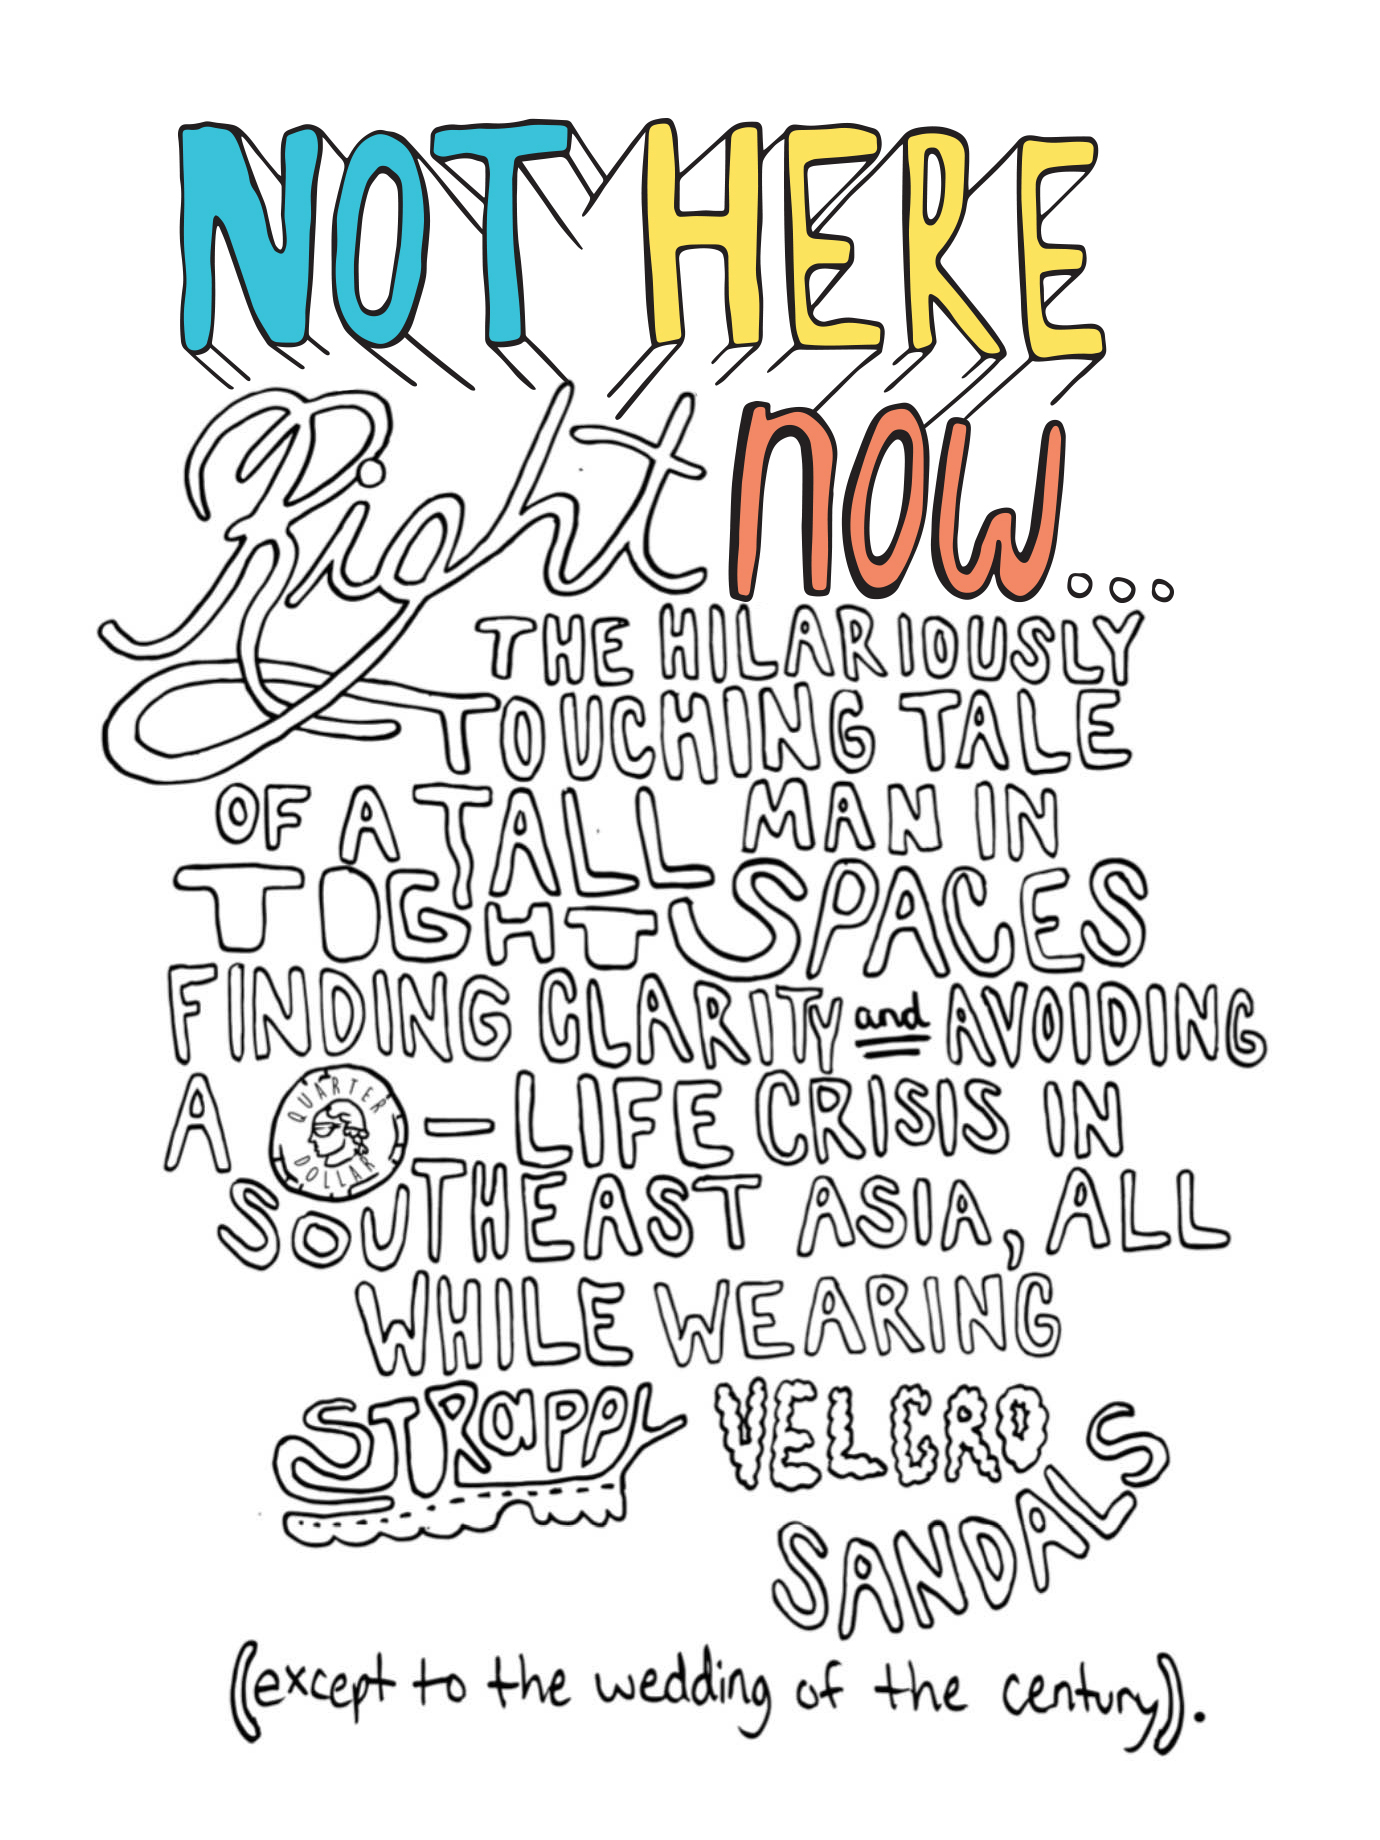 NOT HERE
Right NOW...
THE HILARIOUSLY
TOUCHING TALE
OF A TALL MAN IN
TIGHT SPACES
FINDING CLARITY and AVOIDING
A QUARTER DOLLAR-LIFE CRISIS IN
SOUTHEAST ASIA, ALL
WHILE WEARING
STRAPPY VELCRO
SANDALS
(except to the wedding of the century).